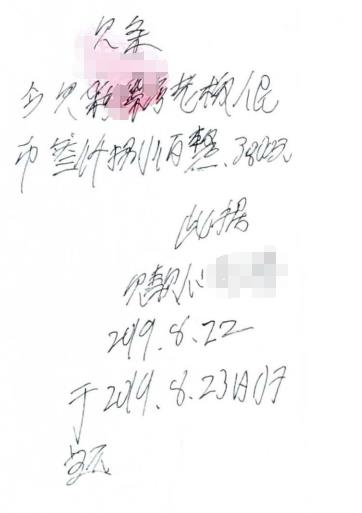 欠条
今欠 老板人民
币叁仟捌佰整.3800元
此据
欠款人
2019.8.22
于2019.8.23日